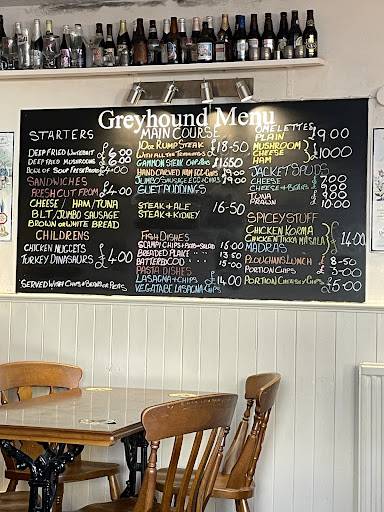 Greyhound Menu
STARTERS
DEEP FRIED WHITEBAIT £6.00
DEEP FRIED MUSHROOMS 6.00
BOWL OF SOUP FRESH BREAD £4.00
SANDWICHES
FRESH CUT FROM £4.00
CHEESE / HAM/TUNA
BLT/JUMBO SAUSAGE
BROWN OR WHITE BREAD
CHILDRENS
CHICKEN NUGGETS
TURKEY DINASAURS £4.00
SERVED WITH CHIPS & BEANS OR PEAS
MAIN COURSE
10oz RUMP STEAK £18-50
WITH ALL THE TRIMMINGS
GAMMON STEAK £16.50
HAND CARVED HAM EGG CHIPS
JUMBO SAUSAGE EGG & CHIPS
SUET PUDDINGS
STEAK + ALE
STEAK + KIDNEY 16-50
FISH DISHES
SCAMPI CHIPS + PEAS + SALAD 16.00
BREADED PLAICE " " 13.50
BATTERED COD " " 15.00
PASTA DISHES
LASAGNA + CHIPS
VEGATABLE LASAGNA CHIPS £14.00
OMELETTES
PLAIN £9.00
MUSHROOM
CHEESE
HAM £10.00
JACKET SPUDS
CHEESE 7.00
CHEESE + BEANS
TUNA
PRAWN 10.00
SPICEY STUFF
CHICKEN KORMA
CHICKEN TIKKA MASALA
MADRAS 14.00
PLOUGHMANS LUNCH 8-50
PORTION CHIPS 3-00
PORTION CHEESEY CHIPS 5-00